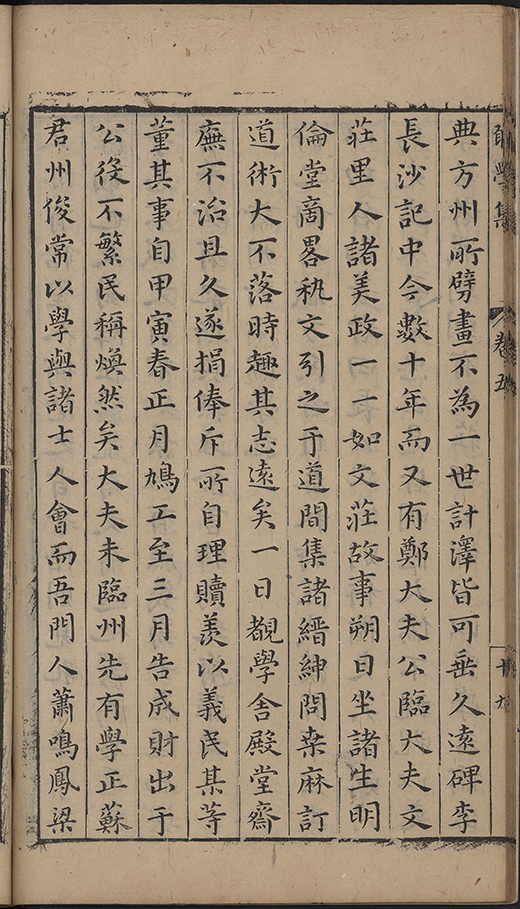 學集 卷五 十九
典方州所劈畫不為一世計澤皆可垂久遠碑李
長沙記中今數十年而又有鄭大夫公臨大夫文
莊里人諸美政一一如文莊故事朔日坐諸生明
倫堂啇畧秇文引之于道間集諸縉紳問桒麻訂
道術大不落時趣其志遠矣一日覩學舍殿堂齋
廡不治且久遂捐俸斥所自理贖羨以義民某等
董其事自甲寅春正月鳩工至三月告成財出于
公役不繁民稱煥然矣大夫未臨州先有學正蘇
君州俊常以學與諸士人會而吾門人蕭鳴鳳梁